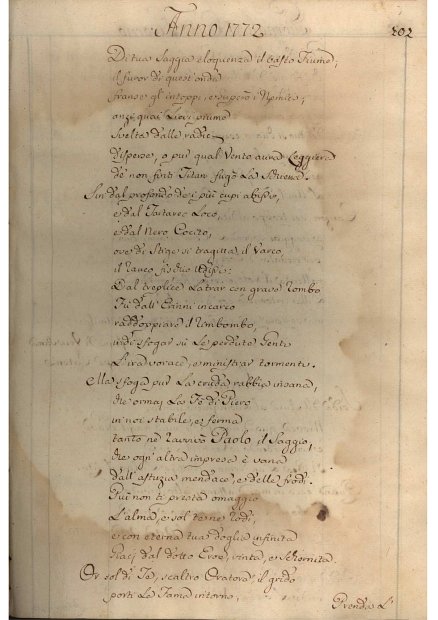 Anno 1772
202
Di tua saggia eloquenza il vasto Fiume;
il furor di quest'onda
franse gl'intoppi, e superò i Nemici,
anzi quai lievi piume
svelte dalle radici
disperse, o pur qual Vento aura leggiera
de' non finti Titan fugò la schiera.
Sin dal profondo de i più cupi abissi,
e dal Tartareo loco,
e dal Nero Cocito,
ove di Stige si tragitta il Varco,
il rauco
Dal triplice latrar con grave rombo
Fù dall' Erinni incarco
raddoppiare il rimbombo,
indi sfogar sù le perdute Genti
L'ira vorace, e ministrar tormenti.
Ella sfoga pur la cruda rabbia insana,
che ormai la Fè di Piero
in noi stabile, e ferma
tanto ne ravvivò Paolo il Saggio,
che ogn' altra impresa è vana
dall' astuzia mendace, e delle frodi.
Può non ti presta omaggio
L'alma, e sol te ne rodi,
e con eterna tua doglia infinita
Giaci dal dotto Eroe, vinta, e schernita.
Or sol di Te, scaltro Oratore, il grido
porti la Fama intorno,
Prenda L'